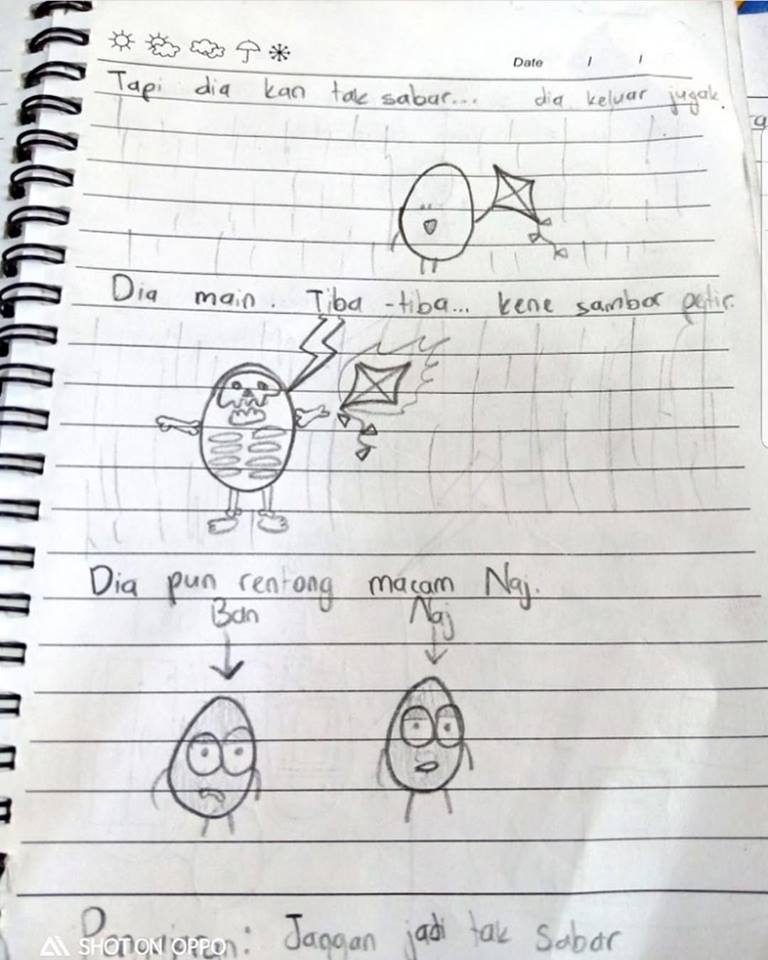 Date / /
Tapi dia kan tak sabar... dia keluar jugak.
Dia main. Tiba-tiba... kene sambar petir.
Dia pun rentong macam Naj.
Ban Naj
: Janggan jadi tak Sabar
SHOT ON OPPO